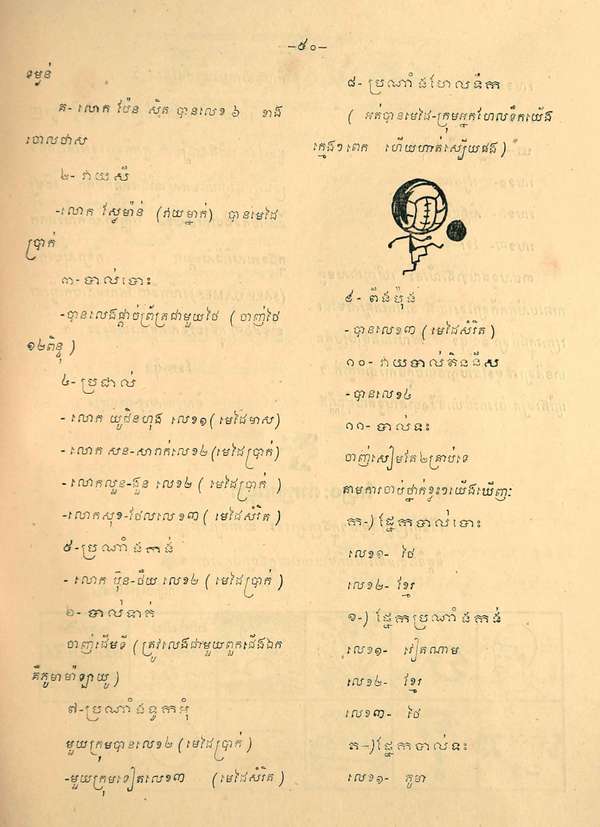 -៥០-
ទម្ងន់
គ- លោក ប៉ែន ស៊ីត បានលេខ ៦ ខាង
បោលថាស
២- វាយសី
-លោក ស្វែម៉ាន់ (វាយម្នាក់) បានមេដៃ
ប្រាក់
៣- បាល់បោះ
-បានលេងផ្ដាច់ព្រ័ត្រជាមួយថៃ ( ចាញ់ថៃ
១២ពិន្ទុ )
៤- ប្រដាល់
- លោក យូជិនហុង លេខ១ ( មេដៃមាស)
- លោក សន-សារាក់លេខ២ (មេដៃប្រាក់)
- លោកលួន-ងួន លេខ២ ( មេដៃប្រាក់ )
-លោកសុខ-ថៃលលេខ៣ ( មេដៃសំរិត )
៥-ប្រណាំងកង់
- លោក ប៊ុន-ថឺយ លេខ២ ( មេដៃប្រាក់ )
៦- បាល់ទាក់
ចាញ់ដើមទី ( ត្រូវលេងជាមួយពួកជើងឯក
គឺភូមាម៉ាឡាយូ )
៧-ប្រណាំងទូកអុំ
មួយក្រុមបានលេខ២ ( មេដៃប្រាក់ )
-មួយក្រុមទៀតលេខ៣ ( មេដៃសំរិត )
៨- ប្រណាំងហែលទឹក
( អត់បានមេដៃ-ក្រុមអ្នកហែលទឹកយើង
ក្មេងៗពេក ហើយហាត់ស្បើយផង )
៩- ពីងប៉ុង
- បានលេខ៣ ( មេដៃសំរិត )
១០- វាយបាល់តិននីស
- បានលេខ៤
១១- បាល់ទះ
ចាញ់សៀមតែ២គ្រាប់ទេ
តាមការចាប់ថ្នាក់ខ្លះៗយើងឃើញ:
ក-) ផ្នែកបាល់បោះ
លេខ១- ថៃ
លេខ២- ខ្មែរ
ខ-) ផ្នែកប្រណាំងកង់
លេខ១- វៀតណាម
លេខ២- ខ្មែរ
លេខ៣- ថៃ
គ-)ផ្នែកបាល់ទះ
លេខ១- ភូមា